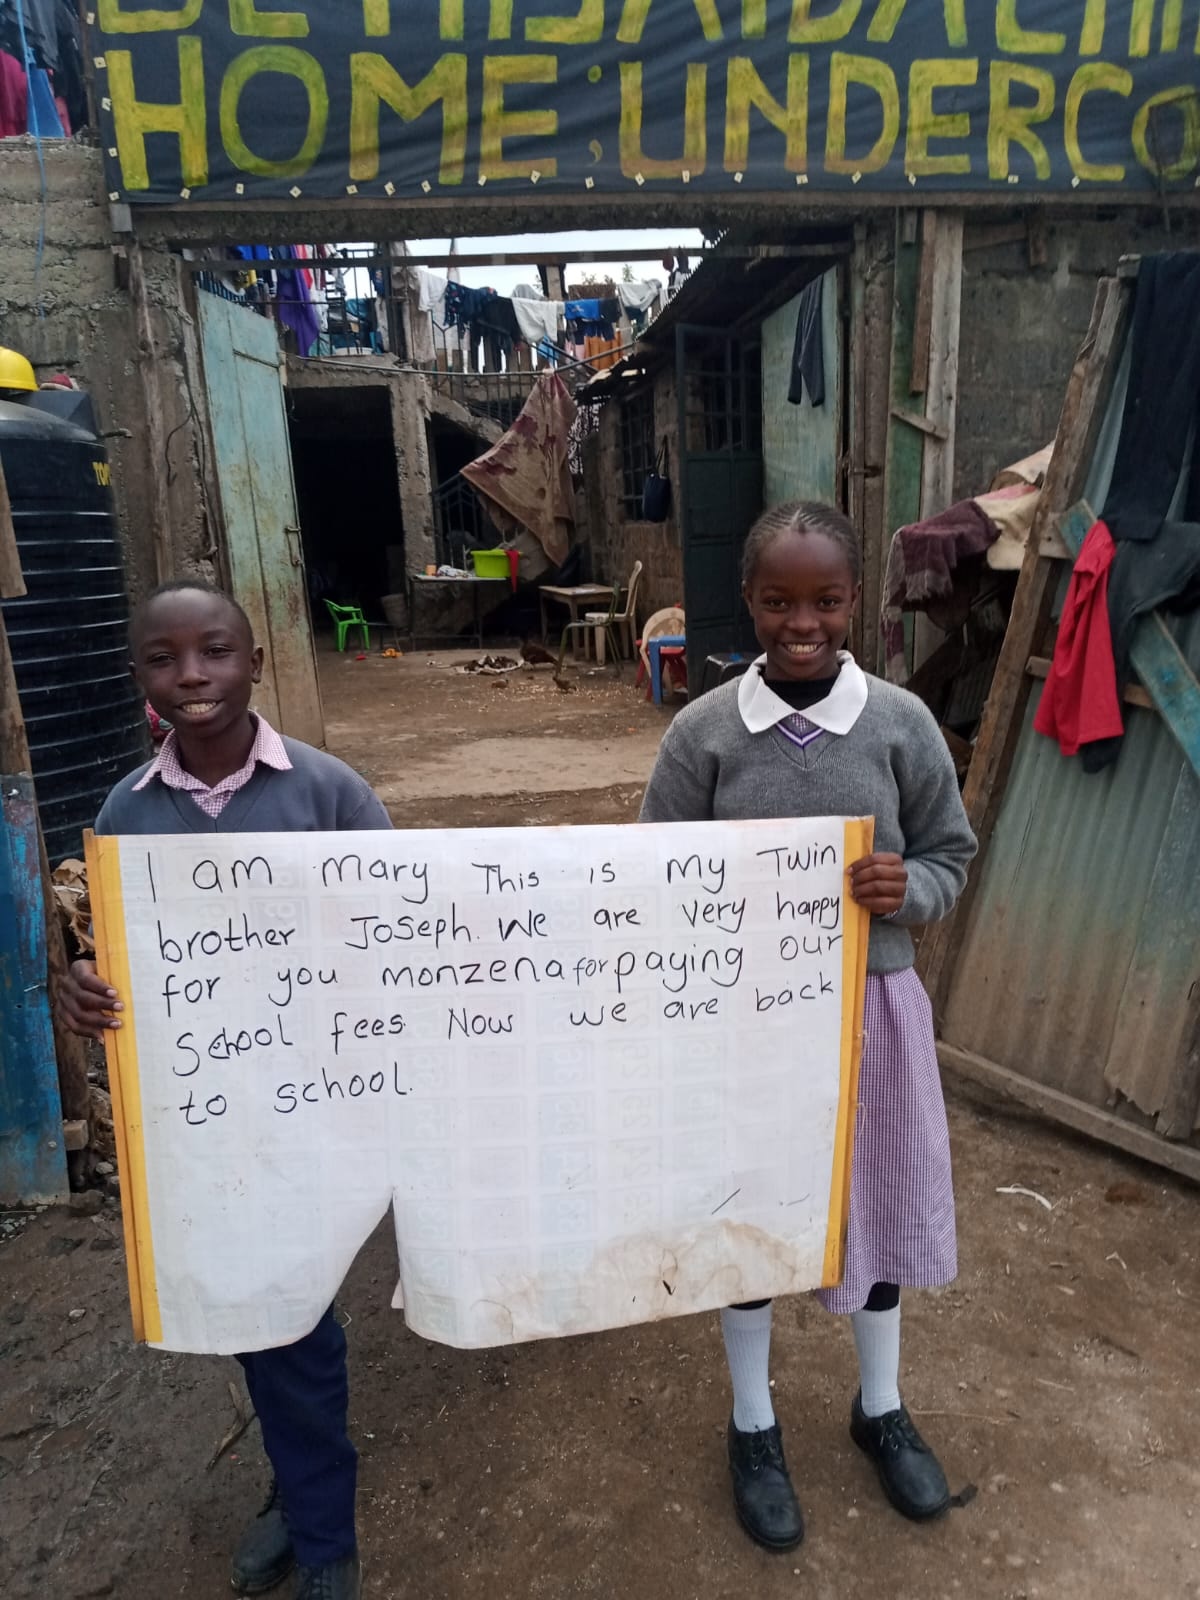 HOME; UNDERCO
I am mary This is my Twin
brother Joseph. We are very happy
for you monzena for paying our
School fees. Now we are back
to school.